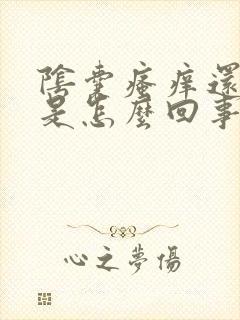 陰囊瘙痒還
是怎麼回事
心之夢傷